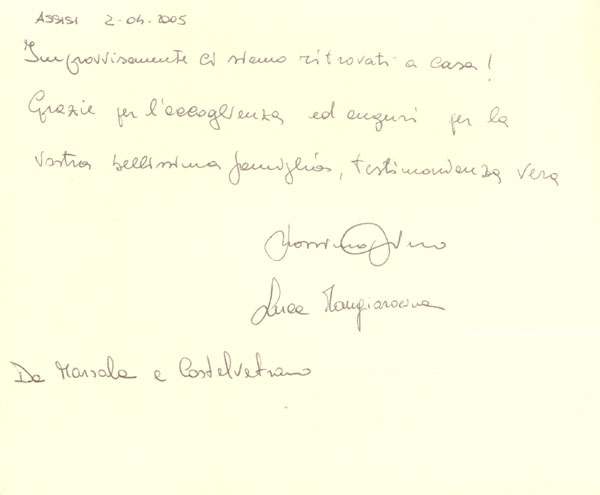 ASSISI 2-04-2005
Improvvisamente ci siamo ritrovati a casa!
Grazie per l'accoglienza ed auguri per la
vostra bellissima famiglia, testimonianza vera
Luca
Da Marsala e Castelvetrano